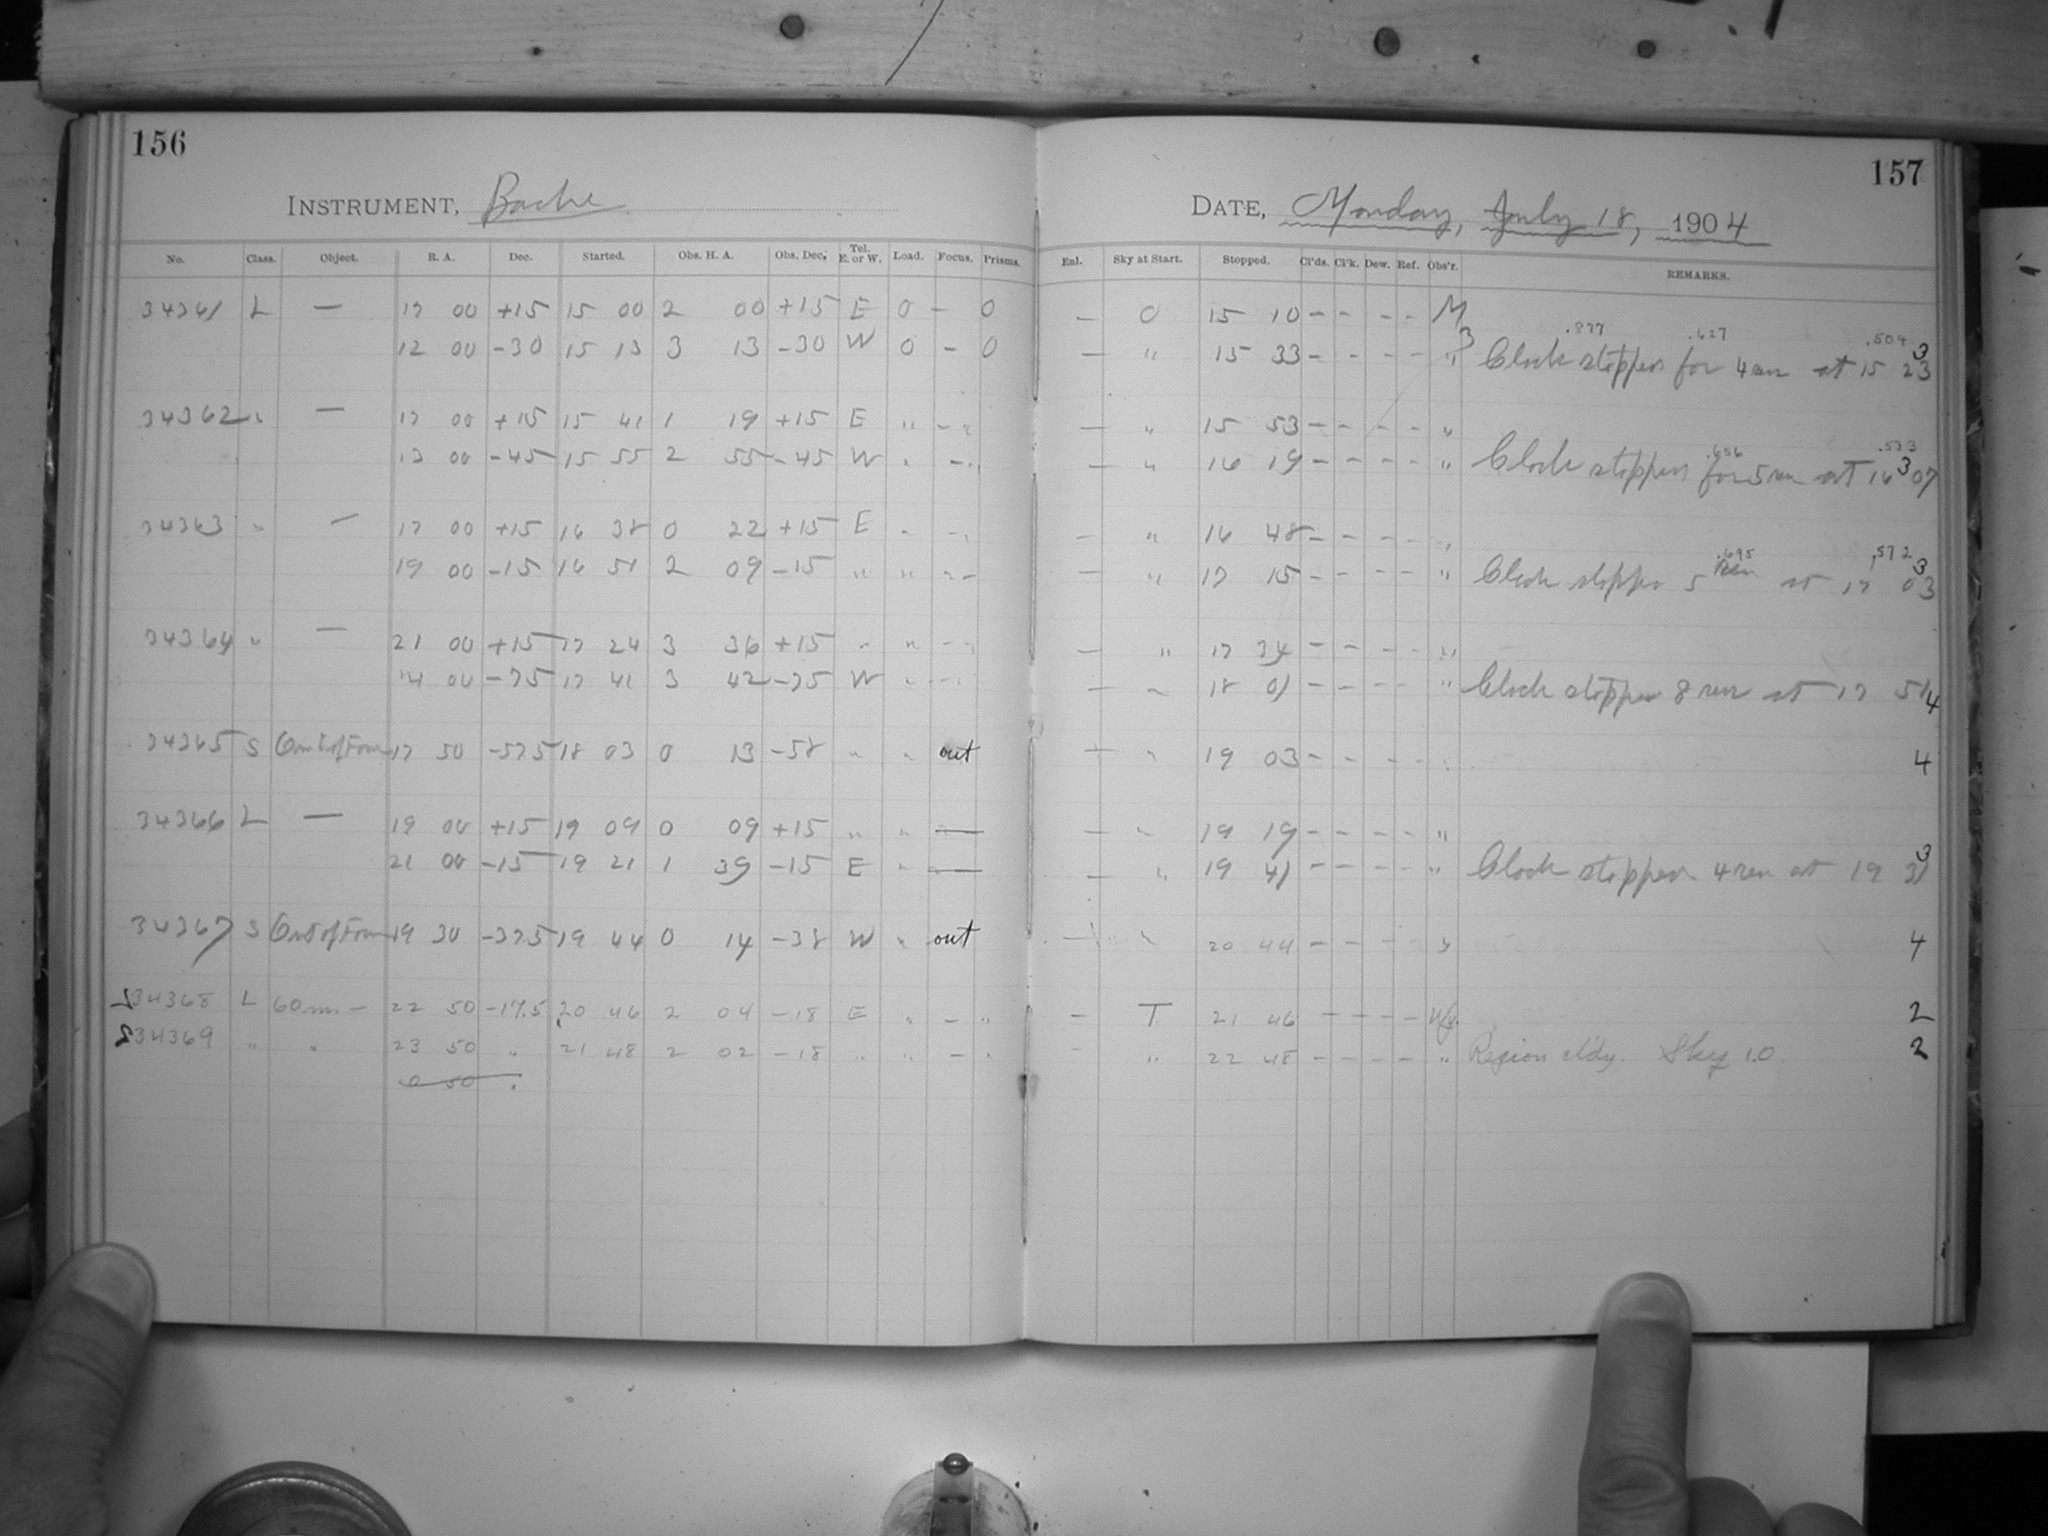 156
INSTRUMENT, Bache
No. Class. Object. R. A. Dec. Started. Obs. H. A. Obs. Dec. Tel. E. or W. Load. Focus. Prisms.
34361 L — 17 00 +15 15 00 2 00 +15 E 0 – 0
12 00 -30 15 13 3 13 -30 W 0 – 0
34362 " — 17 00 +15 15 41 1 19 +15 E " – "
13 00 -45 15 55 2 55 -45 W " – "
34363 " — 17 00 +15 16 38 0 22 +15 E " – "
19 00 -15 16 51 2 09 -15 " " – –
34364 " — 21 00 +15 17 24 3 36 +15 " " – "
14 00 -75 17 41 3 42 -75 W " – "
34365 S Out of Focus 17 50 -57.5 18 03 0 13 -58 " " out
34366 L — 19 00 +15 19 09 0 09 +15 " " —
21 00 -15 19 21 1 39 -15 E " —
34367 S Out of Focus 19 30 -37.5 19 44 0 14 -38 W " out
S34368 L 60m. – 22 50 -17.5 20 46 2 04 -18 E " – "
S34369 " " 23 50 " 21 48 2 02 -18 " " – "
0 50 "
157
DATE, Monday, July 18, 1904
Enl. Sky at Start. Stopped. Cl'ds. Cl'k. Dew. Ref. Obs'r. REMARKS.
– 0 15 10 – – – – M
.877 .627 .504
– " 15 33 – – – – " 3 Clock stopped for 4 rev at 15 23 3
– " 15 53 – – – – "
.656 .533
– " 16 19 – – – – " Clock stopped for 5 rev at 16 07 3
– " 16 48 – – – – "
.695 .572
– " 17 15 – – – – " Clock stopped 5 rev at 17 03 3
– " 17 34 – – – – "
– " 18 01 – – – – " Clock stopped 8 rev at 17 51 4
– " 19 03 – – – – " 4
– " 19 19 – – – – "
– " 19 41 – – – – " Clock stopped 4 rev at 19 31 3
– " 20 44 – – – – " 4
– T 21 46 – – – – 2
– " 22 48 – – – – " Region cldy. Sky 1.0 2